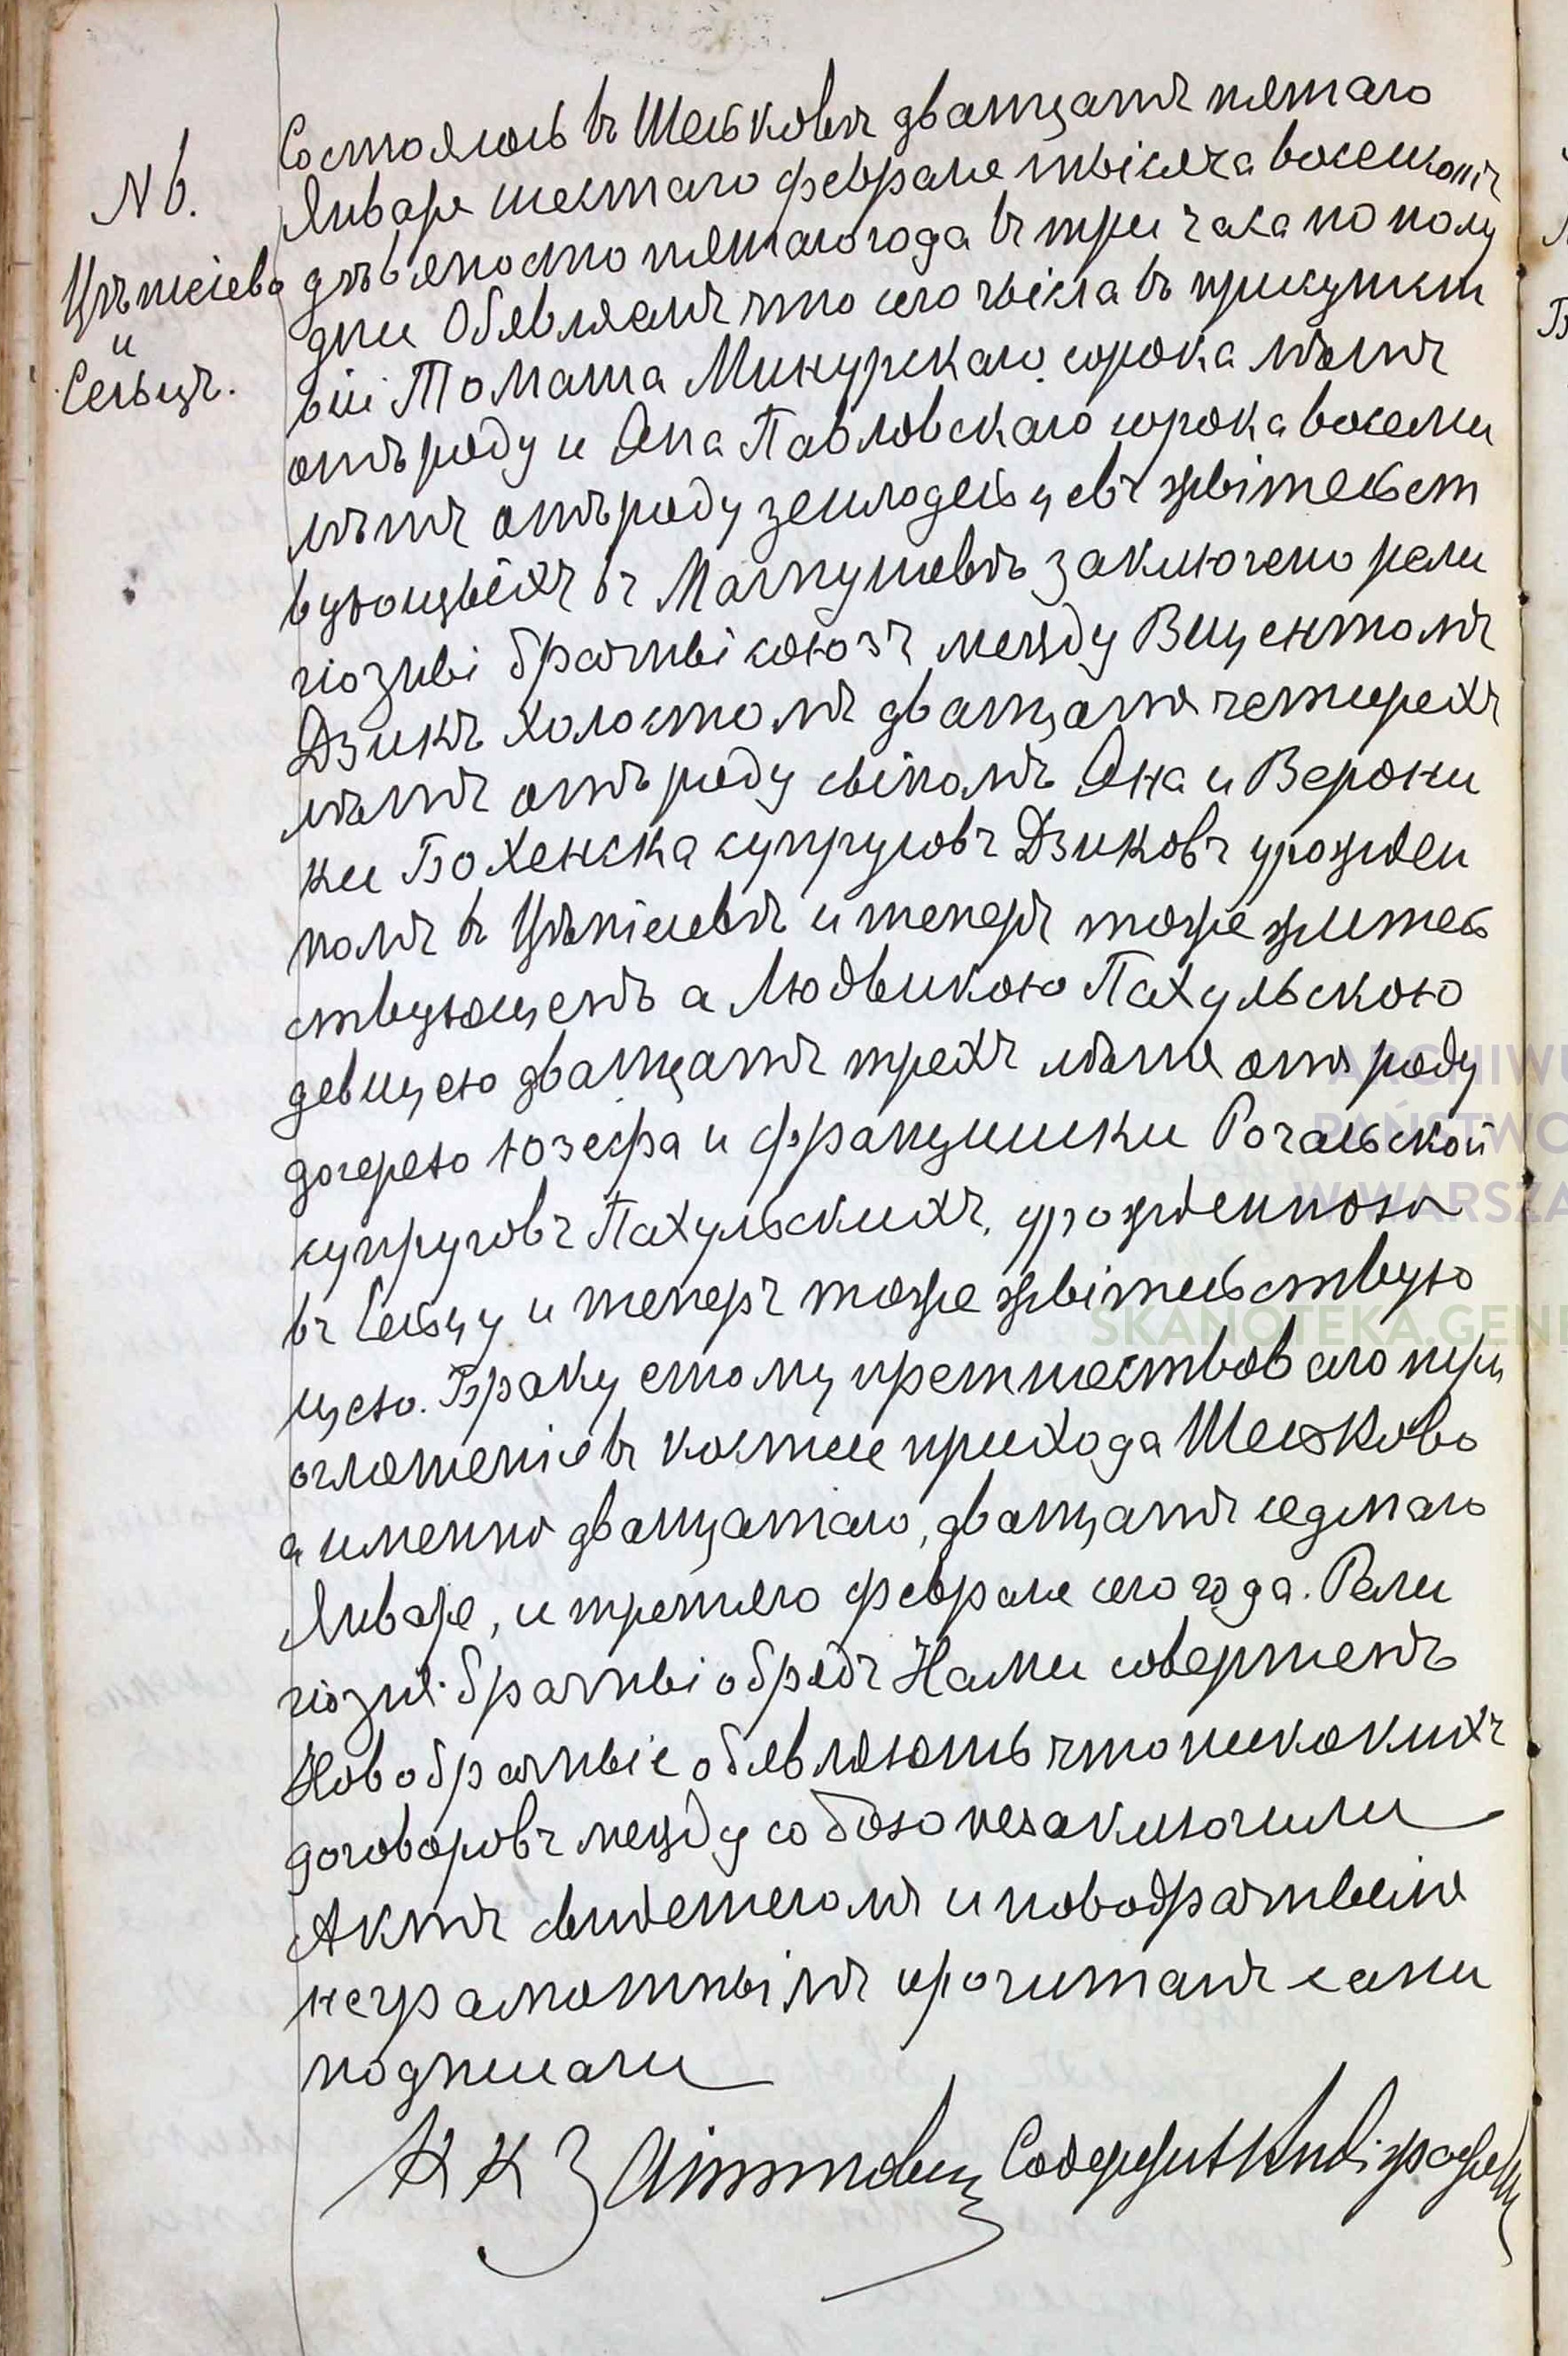 N 6.
Цѣпѣлево
и
Сельцъ.
Состоялось въ Шельковѣ дватцать пятаго
Января шестаго февраля тысяча восемьсотъ
девяносто пятаго года въ три часа по полу
дни Объявляемъ что сего числа въ присуцтст
віи Томаша Микурскаго сорока лѣтъ
отъ роду и Яна Павловскаго сорока восеми
лѣтъ отъ роду землодельцевъ жытельст
вующыхъ въ Магнушевѣ заключено рели
гіозны брачны союзъ между Вицентомъ
Дзикъ холостомъ дватцать четырехъ
лѣтъ отъ роду сыномъ Яна и Верони
ки Бохенска супруговъ Дзиковъ урожден
номъ в Цѣпѣлевѣ и теперъ тоже жытель
ствующемъ а Людвикою Пахульскою
девицею дватцать трехъ лѣтъ отъ роду
дочерею Юзефа и францишки Рочальской
супруговъ Пахульскихъ, урожденною
въ Сельцу и теперъ тоже жытельствую
щею. Браку етому претшествовало три
оглошеніе въ костеле прихода Шельково
а именно дватцатаго, дватцать седмаго
Января, и третяго февраля сего года. Рели
гіозны брачны обрядъ Нами совершенъ
Новобрачные обявляютъ что никакихъ
договоровъ между собою незаключили
Актъ свидетелямъ и новобрачнымъ
неграмотнымъ прочитанъ сами
подписали
К К З